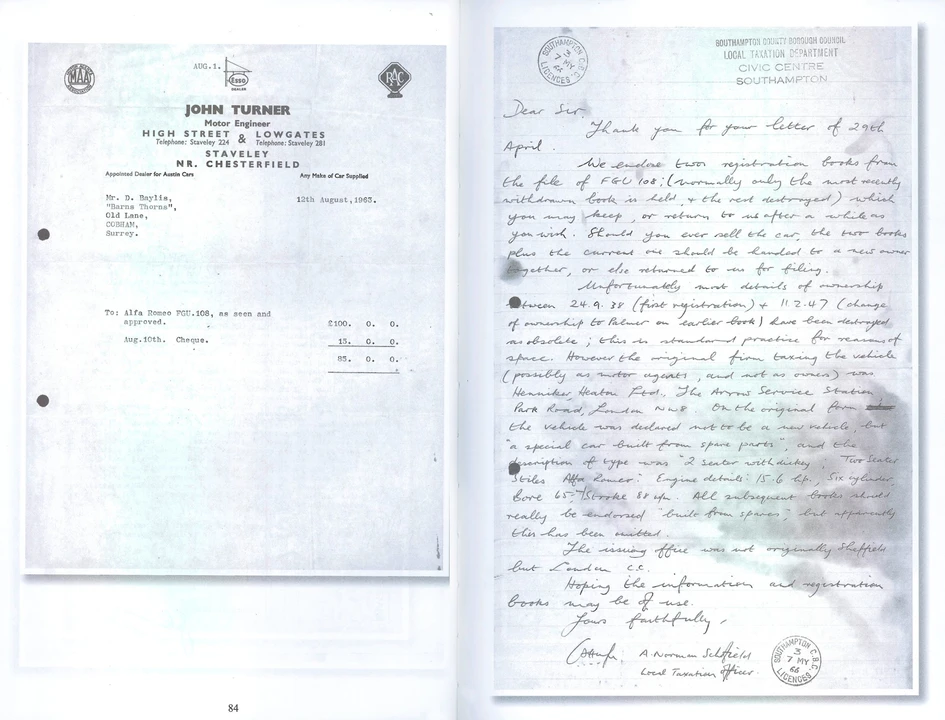 MAA
AUG.1.
Esso
DEALER
RAC
JOHN TURNER
Motor Engineer
HIGH STREET & LOWGATES
Telephone: Staveley 224 Telephone: Staveley 281
STAVELEY
NR. CHESTERFIELD
Appointed Dealer for Austin Cars Any Make of Car Supplied
Mr. D. Baylis, 12th August,1963.
"Barns Thorns",
Old Lane,
COBHAM,
Surrey.
To: Alfa Romeo FGU.108, as seen and
approved. £100. 0. 0.
Aug.10th. Cheque. 15. 0. 0.
85. 0. 0.
84
SOUTHAMPTON C.B.C.
3
7 MY
66
LICENCES
SOUTHAMPTON COUNTY BOROUGH COUNCIL
LOCAL TAXATION DEPARTMENT
CIVIC CENTRE
SOUTHAMPTON
Dear Sir,
Thank you for your letter of 29th
April.
We enclose two registration books from
the file of FGU 108; (normally only the most recently
withdrawn book is held, & the rest destroyed) which
you may keep, or return to us after a while as
you wish. Should you ever sell the car, the two books
plus the current one should be handed to a new owner
together, or else returned to us for filing.
Unfortunately most details of ownership
between 24.9.38 (first registration) & 11.2.47 (change
of ownership to Palmer on earlier book) have been destroyed
as obsolete; this is standard practise for reasons of
space. However the original firm taxing the vehicle
(possibly as motor agents, and not as owners) was
Henniker, Heaton Ltd., The Arrow Service Station,
Park Road, London NW8. On the original form
the vehicle was declared not to be a new vehicle, but
"a special car built from spare parts", and the
description of type was "2 seater with dickey, Two Seater
Stiles Alfa Romeo: Engine details: 15.6 h.p., Six cylinder,
Bore 65 Stroke 88 m. All subsequent books should
really be endorsed "built from spares", but apparently
this has been omitted.
The issuing office was not originally Sheffield
but London C.C.
Hoping the information and registration
books may be of use.
Yours faithfully,
A. Norman Schofield
Local Taxation Officer.
SOUTHAMPTON C.B.C.
3
7 MY
66
LICENCES